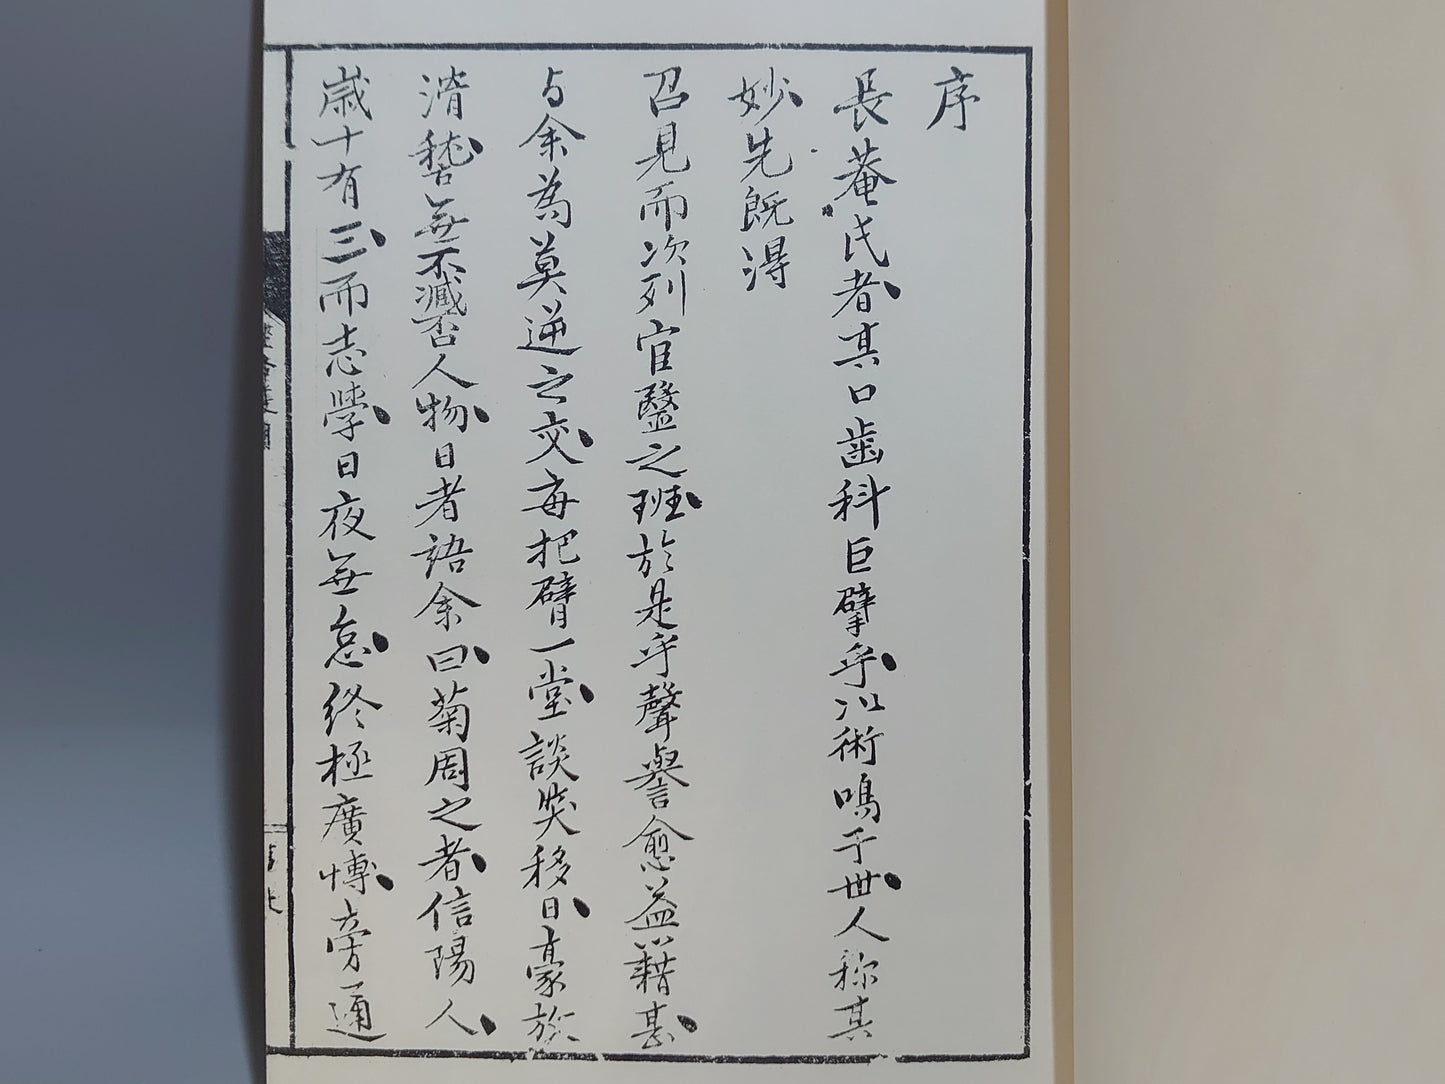 序
長菴氏者其口歯科巨擘乎以術鳴于世人称其
妙先既得
召見而次列官醫之班於是乎聲譽愈益籍甚
与余為莫逆之交毎把臂一堂談笑移日豪放
滑稽無不臧否人物日者語余曰菊周之者信陽人
歳十有三而志學日夜無怠終極廣博旁通